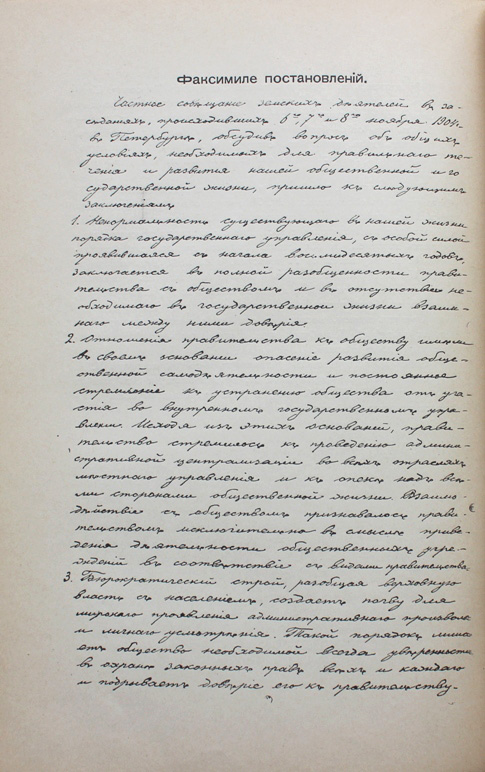 Факсимиле постановленій.
Частное совѣщаніе земскихъ дѣятелей въ за-
сѣданіяхъ, происходившихъ 6го, 7го и 8го ноября 1904 г.
въ Петербургѣ, обсудивъ вопросъ объ общихъ
условіяхъ, необходимыхъ для правильнаго те-
ченія и развитія нашей общественной и го
сударственной жизни, пришло къ слѣдующимъ
заключеніямъ:
1. Ненормальность существующаго въ нашей жизни
порядка государственнаго управленія, съ особой силой
проявившаяся съ начала восьмидесятыхъ годовъ,
заключается въ полной разобщенности прави-
тельства съ обществомъ и въ отсутствіи не-
обходимаго въ государственной жизни взаим-
наго между ними довѣрія.
2. Отношенія правительства къ обществу имѣли
въ своемъ основаніи опасеніе развитія обще-
ственной самодѣятельности и постоянное
стремленіе къ устраненію общества отъ уча-
стія во внутреннемъ государственномъ упра-
вленіи. Исходя изъ этихъ основаній, прави-
тельство стремилось къ проведенію админи-
стративной централизаціи во всѣхъ отрасляхъ
мѣстнаго управленія и къ опекѣ надъ всѣ-
ми сторонами общественной жизни. Взаимо-
дѣйствіе съ обществомъ признавалось прави-
тельствомъ исключительно въ смыслѣ приве-
денія дѣятельности общественныхъ учре-
жденій въ соотвѣтствіе съ видами правительства.
3. Бюрократическій строй, разобщая верховную
власть съ населеніемъ, создаетъ почву для
широкаго проявленія административнаго произвола
и личнаго усмотрѣнія. Такой порядокъ лиша-
етъ общество необходимой всегда увѣренности
въ охранѣ законныхъ правъ всѣхъ и каждаго
и подрываетъ довѣріе его къ правительству.